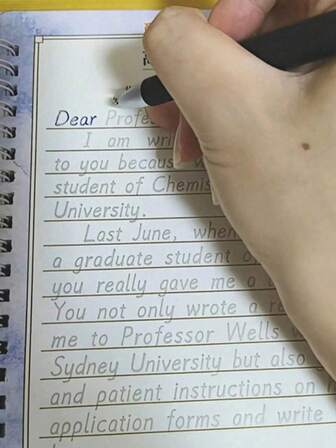 Dear Profe
I am wri
to you becau
student of Chemis
University.
Last June, when
a graduate student o
you really gave me a
You not only wrote a re
me to Professor Wells
Sydney University but also
and patient instructions on
application forms and write